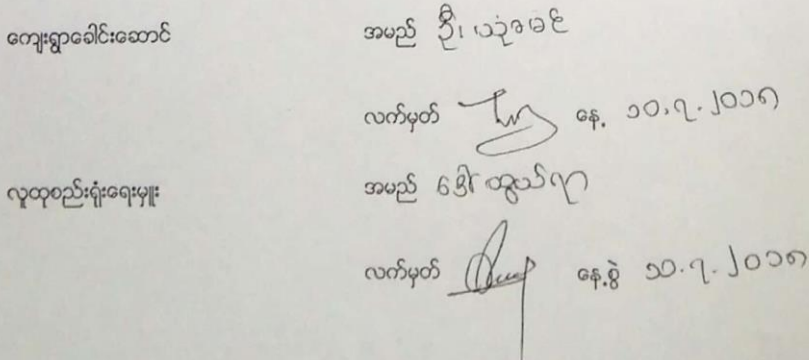 ကျေးရွာခေါင်းဆောင် အမည် ဦး
လက်မှတ် နေ့ ၁၀.၇.၂၀၁၈
လူထုစည်းရုံးရေးမှူး အမည် ဒေါ် ထွယ်ရာ
လက်မှတ် နေ့စွဲ ၁၀.၇.၂၀၁၈